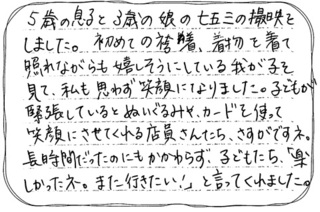 5歳の息子と3歳の娘の七五三の撮影を
しました。初めての袴着、着物を着て
照れながらも嬉しそうにしている我が子を
見て、私も思わず笑顔になりました。子どもが
緊張しているとぬいぐるみや、カードを使って
笑顔にさせてくれる店員さんたち、さすがですネ。
長時間だったのにもかかわらず、子どもたち、「楽
しかったネ。また行きたい!」と言ってくれました。